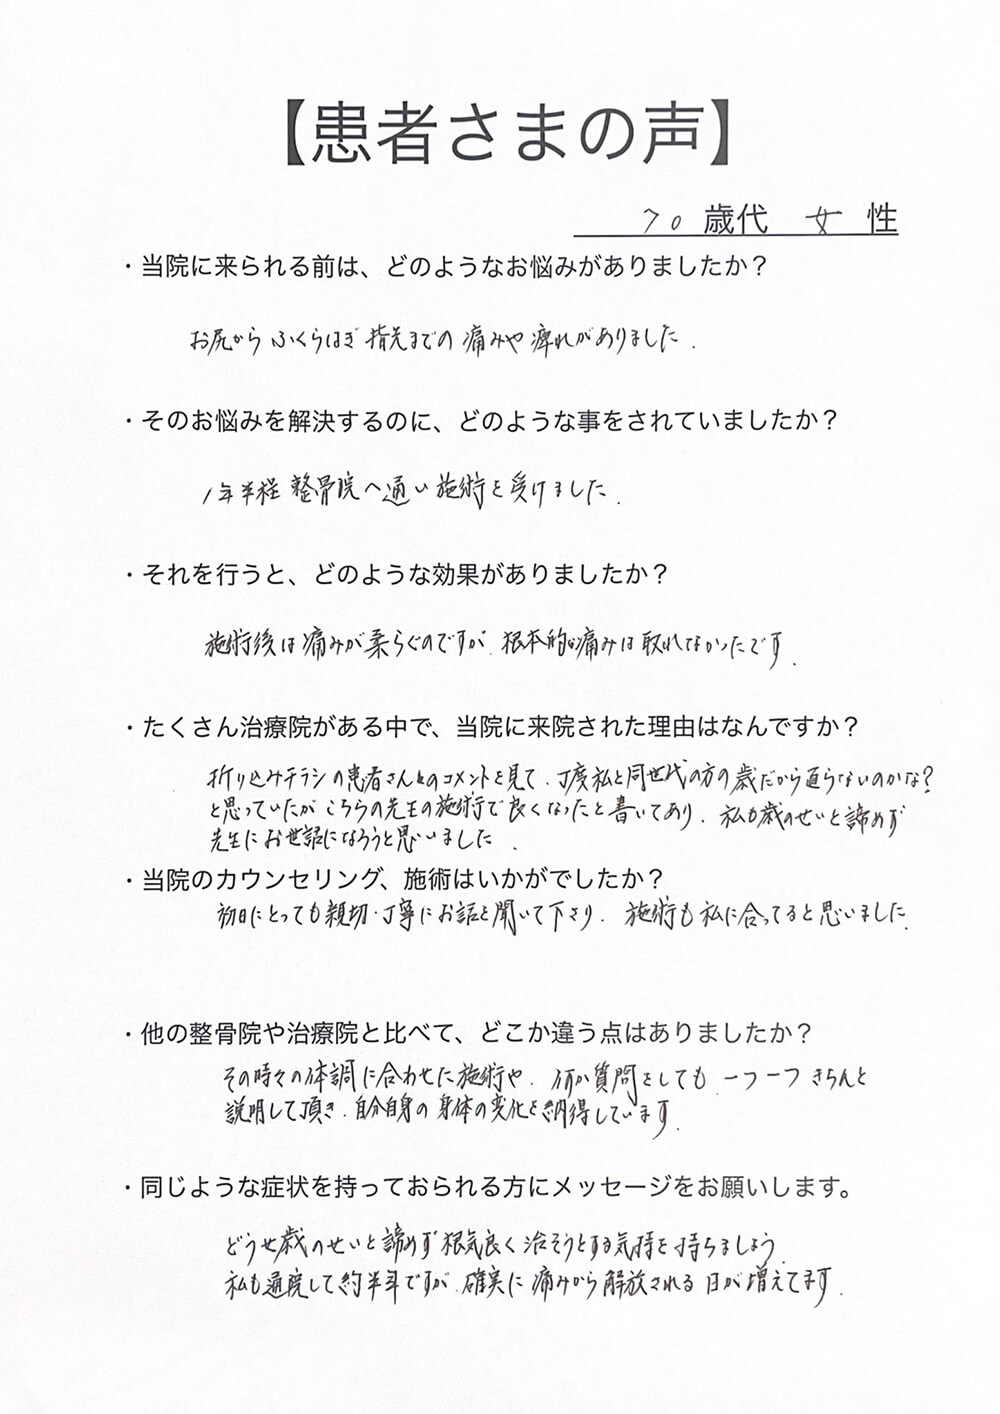 【患者さまの声】
70 歳代 女 性
・当院に来られる前は、どのようなお悩みがありましたか？
お尻から ふくらはぎ 指先までの 痛みや 痺れがありました.
・そのお悩みを解決するのに、どのような事をされていましたか？
1年半程 整骨院へ通い 施術を受けました.
・それを行うと、どのような効果がありましたか？
施術後は痛みが柔らぐのですが. 根本的な痛みは取れてなかったです.
・たくさん治療院がある中で、当院に来院された理由はなんですか？
折り込みチラシの患者さんとのコメントを見て. 丁度私と同世代の方の歳だから直らないのかな?
と思っていたが こちらの先生の施術で良くなったと書いてあり. 私も歳のせいと諦めず
先生にお世話になろうと思いました.
・当院のカウンセリング、施術はいかがでしたか？
初日にとっても親切・丁寧にお話を聞いて下さり. 施術も私に合ってると思いました.
・他の整骨院や治療院と比べて、どこか違う点はありましたか？
その時々の体調に合わせた施術や. 何か質問をしても 一つ一つ きちんと
説明して頂き. 自分自身の身体の変化を納得しています.
・同じような症状を持っておられる方にメッセージをお願いします。
どうせ歳のせいと諦めず 根気良く治そうとする気持を持ちましょう.
私も通院して約半年ですが. 確実に痛みから解放される日が増えてます.